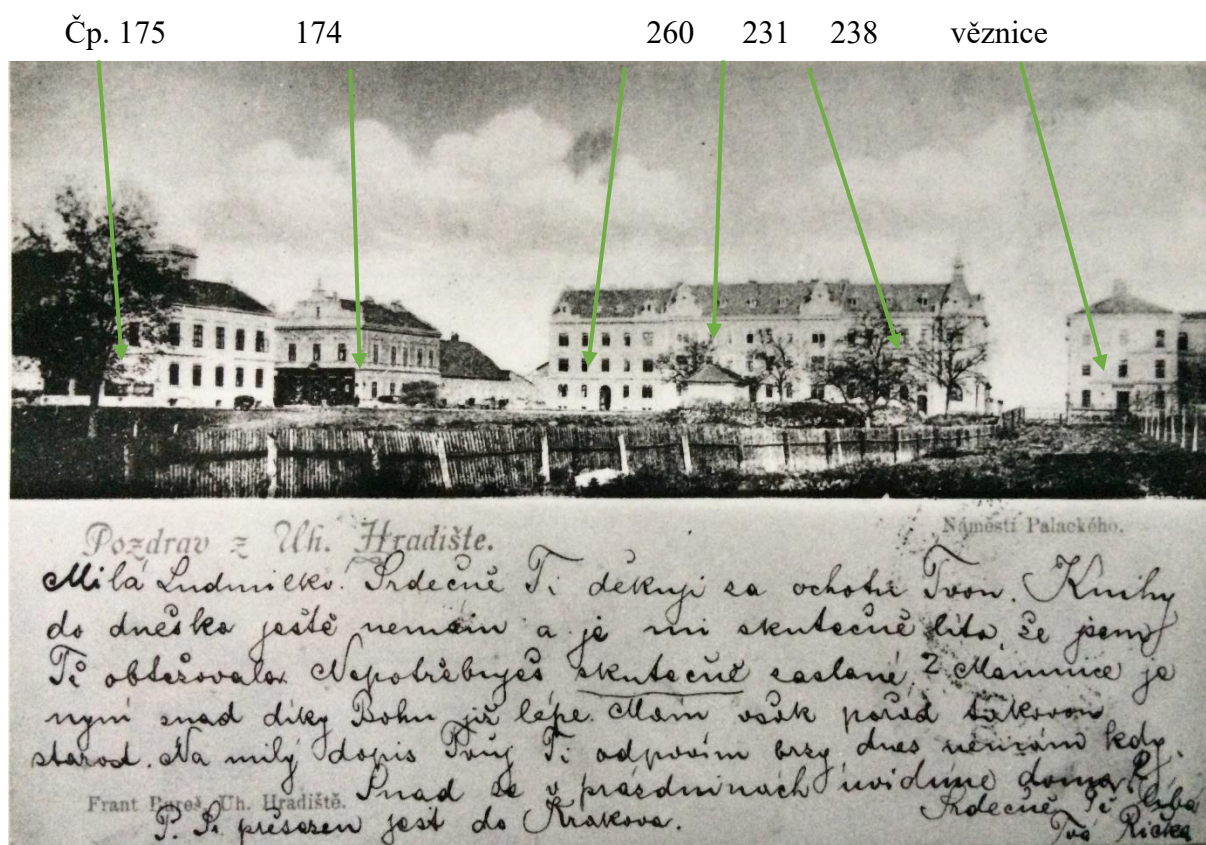 Čp. 175 174 260 231 238 věznice
Pozdrav z Uh. Hradište.
Náměstí Palackého.
Milá Ludmilko! Srdečně Ti děkuji za ochotu Tvou. Knihy
do dneška ještě nemám a je mi skutečně líto, že jsem
Tě obtěžovala. Nepotřebuješ skutečně zaslané? Mamince je
nyní snad díky Bohu již lépe. Mám však pořád takovou
starost. Na milý dopis Tvůj Ti odpovím brzy dnes nemám kdy.
Snad se o prázdninách uvidíme doma
Frant Bureš, Uh. Hradiště.
Srdečně Tě líbá
P. S. přesazen jest do Krakova.
Tvá